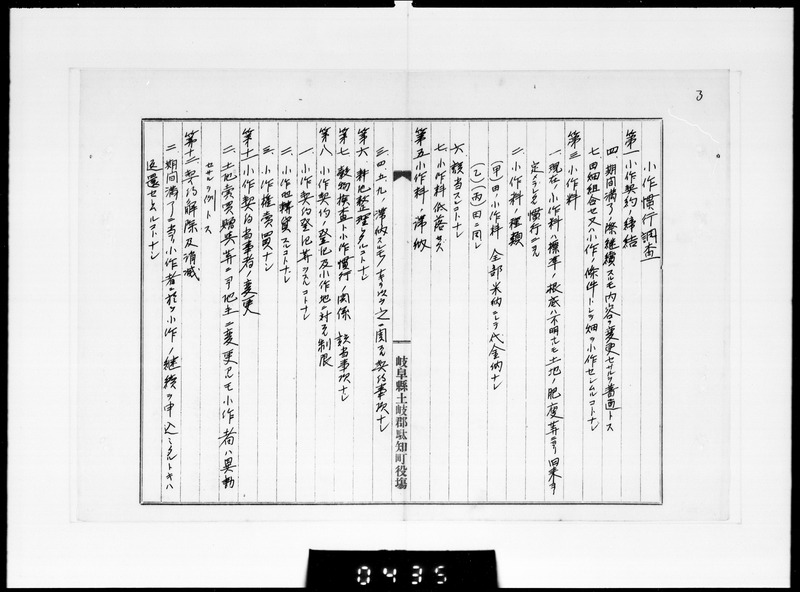 3
小作慣行調査
第一 小作契約ノ締結
四 期間満了ノ際継續スルモ内容ヲ変更セザルヲ普通トス
七 田畑組合セ又ハ小作ノ條件トシテ畑ヲ小作セシムルコトナシ
第三 小作料
一 現在ノ小作料ハ標準ノ根底ハ不明ナルモ土地ノ肥瘦等ニヨリ旧来ヨリ
定メラレタル慣行ニヨル
二 小作料ノ種類
(甲) 田ノ小作料 全部米納ニシテ代金納ナシ
(乙)(丙) 田ニ同シ
六 該当スルトナシ
七 小作料低落セズ
第五 小作料ノ滞納
三、四、五、九、滞納スルモノナキヲ以テ之ニ関スル契約事項ナシ
第六 耕地整理シタルコトナシ
第七 穀物検査ト小作慣行ノ関係 該当事項ナシ
第八 小作契約ノ登記及小作地ニ対スル制限
一、小作契約登記等ヲスルコトナシ
二、小作地轉貸スルコトナシ
三、小作権賣買ナシ
第十 小作契約当事者ノ変更
二 土地賣買贈與等ニヨリ地主ニ変更アルモ小作者ハ異動
セザルヲ例トス
第十二 契約解除及消滅
二 期間満了ニ当リ小作者ニ於テ小作ノ継続ヲ申込ミタルトキハ
返還セシムルコトナシ
岐阜縣土岐郡駄知町役場
0435